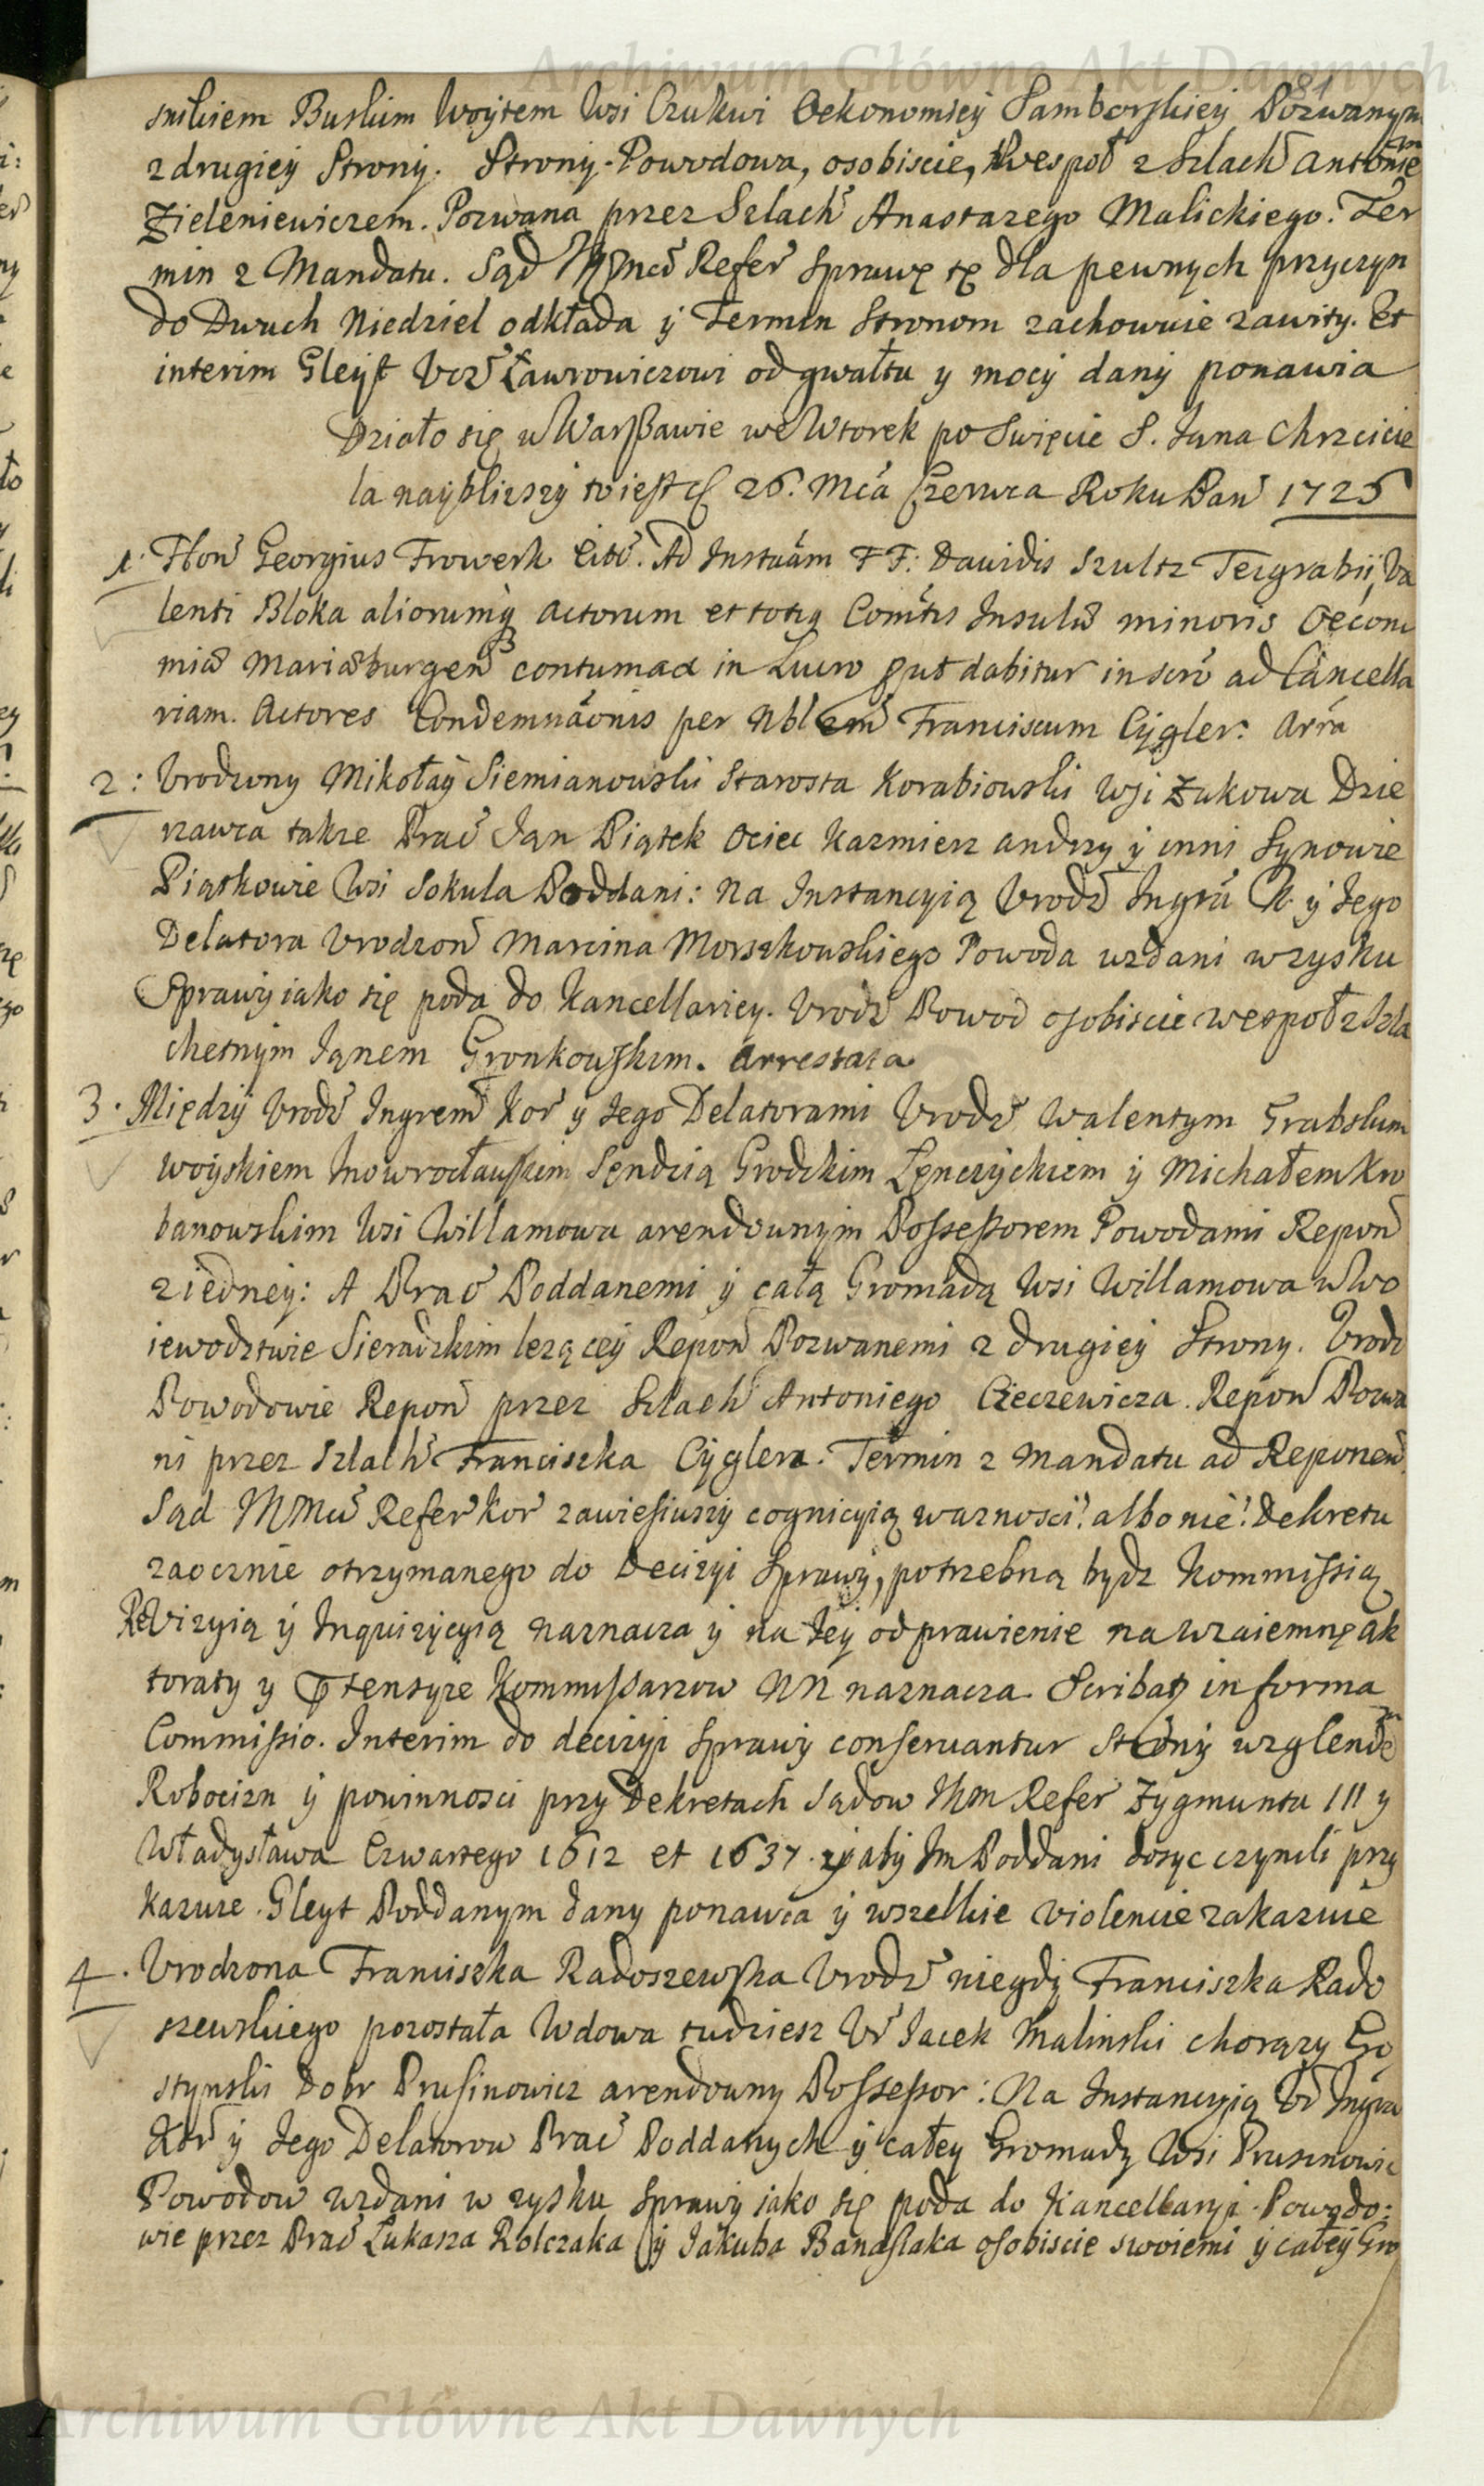 Archiwum Główne Akt Dawnych
81
snikiem Buskim Woytem Wsi Czukwi Oekonomiey Samborskiey Pozwanym
z drugiey Strony. Strony Powodowa, osobiscie, wespoł z Szlach Antonie
Zieleniewiczem. Pozwana przez Szlach Anastazego Malickiego. Ter
min z Mandatu. Sąd Refer Sprawę tę dla pewnych przyczyn
do Dwuch Niedziel odkłada y Termin Stronom zachowuie zawity. Et
interim Gleyt Ławrowiczowi od gwałtu y mocy dany ponawia
Działo się w Warszawie we Wtorek po Swięcie S. Jana Chrzcicie
la nayblizszy to iest 26. Mca Czerwca Roku Pan 1725
1. Hon Georgius Frowerk Cito. Ad Instaam F F: Davidis Szultz Teigrabii, Va
lenti Bloka aliorumq Actorum et totiq Comtis Insulae minoris Oecono
miae Mariaeburgen contumax in Lucro put dabitur in scro ad Cancella
riam. Actores Condemnaonis per Nblem Franciscum Cygler. Arra
2: Urodzony Mikołay Siemianowski Starosta Korabiowski Wsi Zukowa Dzie
rzawca takze Prac Jan Piątek Ociec Kazmierz Andrzy y inni Synowie
Piątkowie Wsi Sokula Poddani: Na Instancyią Urodz Ingra K y Jego
Delatora Urodzon Marcina Morszkowskiego Powoda wzdani w zysku
Sprawy iako się poda do Kancellariey. Urodz Powod osobiscie wespoł z Szla
chetnym Janem Gronkowskim. Arrestata
3. Między Urodz Ingrem Kor y Jego Delatorami Urodz Walentym Grabskim
Woyskiem Inowrocławskim Sendzią Grodzkim Łenczyckiem y Michałem Kro
banowskim Wsi Willamowa arendownym Possessorem Powodami Repon
z iedney: A Prac Poddanemi y całą Gromadą Wsi Willamowa w Wo
iewodztwie Sieradzkim lezącey Repon Pozwanemi z drugiey Strony. Urodz
Powodowie Repon przez Szlach Antoniego Cieczewicza. Repon Pozwa
ni przez Szlach Franciszka Cyglera. Termin z Mandatu ad Reponend.
Sąd Refer Kor zawiesiwszy cognicyią waznosci! albo nie! Dekretu
zaocznie otrzymanego do Decizyi Sprawy, potrzebną bydz Kommissią
Rewizyią y Inquizycyią naznacza y na Jey odprawienie na wzaiemnę ak
toraty y Ptensyie Kommissarzow NN naznacza. Scribatq in forma
Commissio. Interim do decizyi Sprawy conservantur Strony wzglende
Robocizn y powinnosci przy Dekretach Sądow Refer Zygmunta III y
Władysława Czwartego 1612 et 1637. y aby Im Poddani dosyc czynili przy
kazuie. Gleyt Poddanym dany ponawia y wszelkie violencie zakazuie
4. Urodzona Franciszka Radoszewska Urodz niegdy Franciszka Rado
szewskiego pozostała Wdowa tudziesz Ur Jacek Malinski Chorązy Go
stynski Dobr Prusinowicz arendowny Possessor: Na Instancyią Ur Ingra
Kor y Jego Delatorow Prac Poddanych y całey Gromady Wsi Prusinowic
Powodow wzdani w zysku Sprawy iako się poda do Kancellaryi. Powodo:
wie przez Prac Łukasza Rolczaka y Jakuba Banasiaka osobiscie swoiemi y całey Gro
Archiwum Główne Akt Dawnych